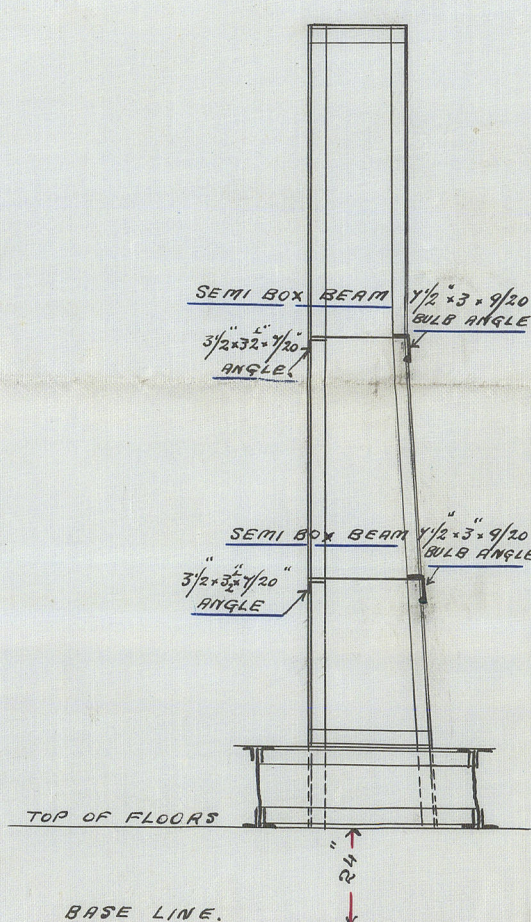 SEMI BOX BEAM
7 1/2" × 3 × 9/20
BULB ANGLE
3 1/2" × 3 1/2" × 7/20"
ANGLE.
SEMI BOX BEAM
7 1/2" × 3" × 9/20
BULB ANGLE
3 1/2" × 3 1/2" × 7/20"
ANGLE
TOP OF FLOORS
24"
BASE LINE.